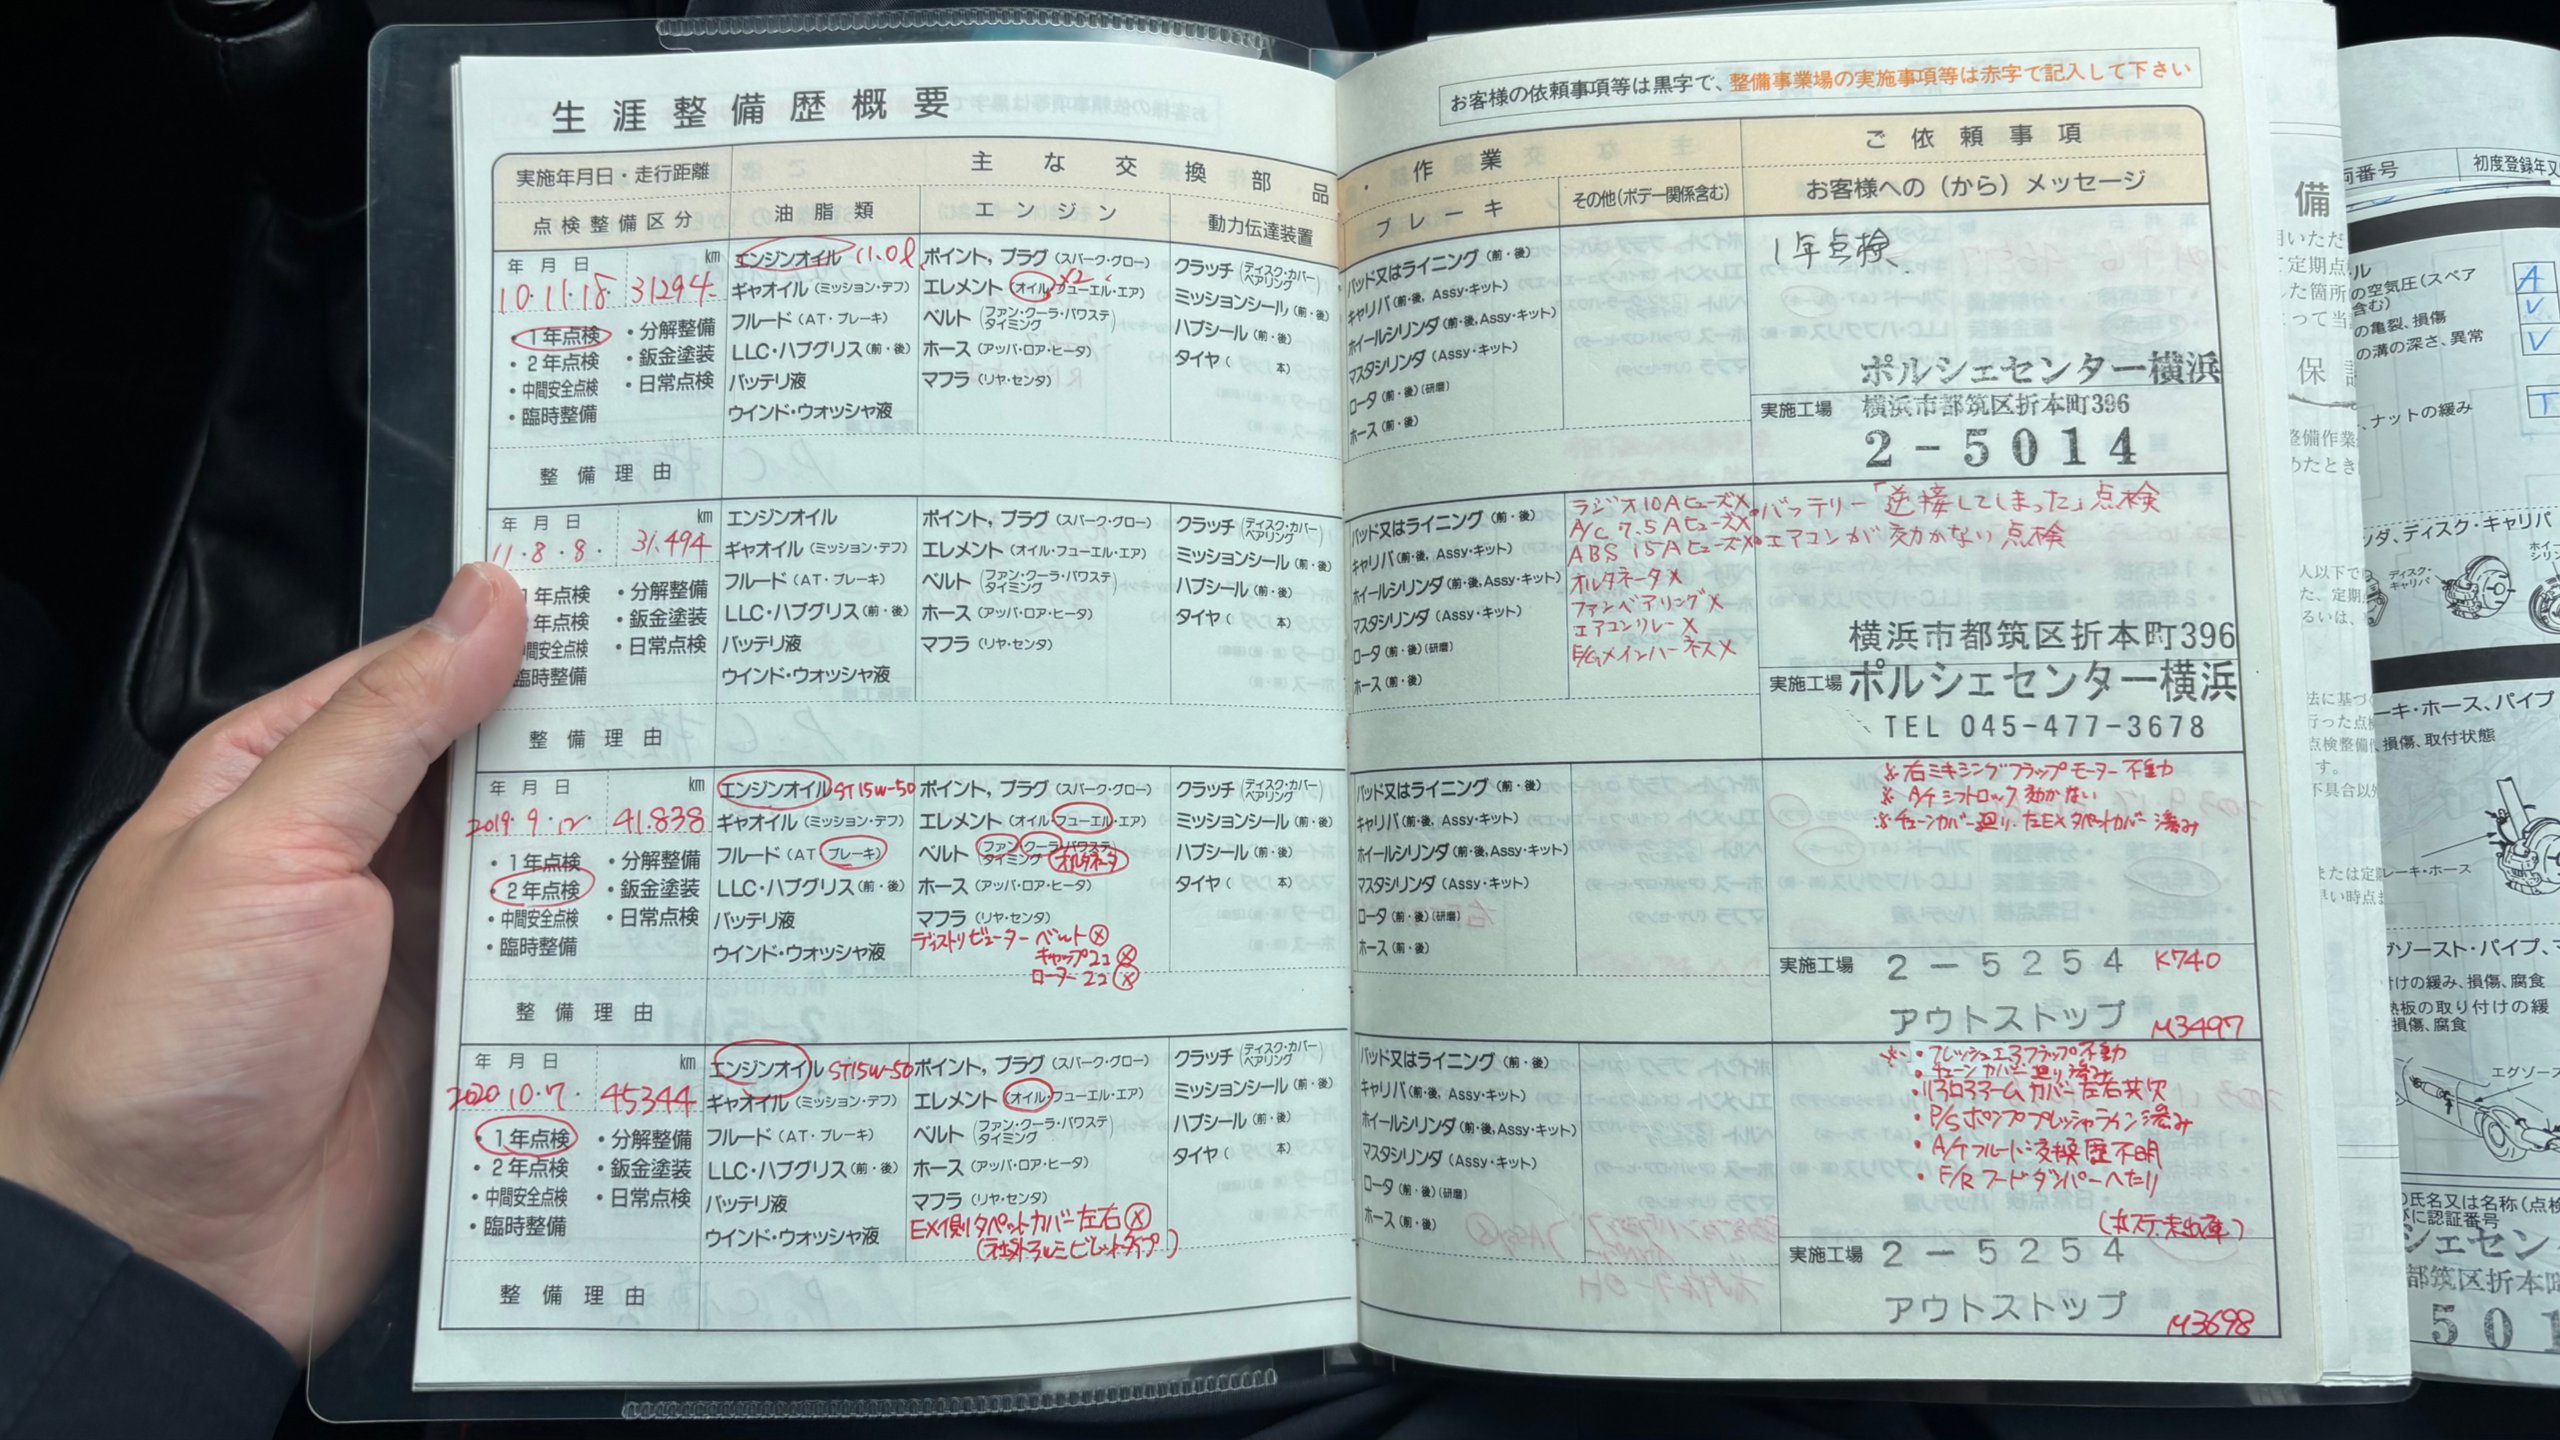 生涯整備歴概要
お客様の依頼事項等は黒字で、整備事業場の実施事項等は赤字で記入して下さい
実施年月日・走行距離
主な交換部品・作業
ご依頼事項
点検整備区分
油脂類
エンジン
動力伝達装置
ブレーキ
その他(ボデー関係含む)
お客様への(から)メッセージ
年 月 日 km
10・11・18 31294
・1年点検 ・分解整備
・2年点検 ・鈑金塗装
・中間安全点検 ・日常点検
・臨時整備
整備理由
エンジンオイル 11.0ℓ
ギヤオイル(ミッション・デフ)
フルード(AT・ブレーキ)
LLC・ハブグリス(前・後)
バッテリ液
ウインド・ウォッシャ液
ポイント,プラグ(スパーク・グロー)
エレメント(オイル・フューエル・エア) ×2
ベルト(ファン・クーラ・パワステ タイミング)
ホース(アッパ・ロア・ヒータ)
マフラ(リヤ・センタ)
クラッチ(ディスク・カバー ベアリング)
ミッションシール(前・後)
ハブシール(前・後)
タイヤ( 本)
パッド又はライニング(前・後)
キャリパ(前・後,Assy・キット)
ホイールシリンダ(前・後,Assy・キット)
マスタシリンダ(Assy・キット)
ロータ(前・後)(研磨)
ホース(前・後)
1年点検
ポルシェセンター横浜
実施工場 横浜市都筑区折本町396
2-5014
年 月 日 km
11・8・8・ 31.494
1年点検 ・分解整備
2年点検 ・鈑金塗装
中間安全点検 ・日常点検
臨時整備
整備理由
エンジンオイル
ギヤオイル(ミッション・デフ)
フルード(AT・ブレーキ)
LLC・ハブグリス(前・後)
バッテリ液
ウインド・ウォッシャ液
ポイント,プラグ(スパーク・グロー)
エレメント(オイル・フューエル・エア)
ベルト(ファン・クーラ・パワステ タイミング)
ホース(アッパ・ロア・ヒータ)
マフラ(リヤ・センタ)
クラッチ(ディスク・カバー ベアリング)
ミッションシール(前・後)
ハブシール(前・後)
タイヤ( 本)
パッド又はライニング(前・後)
キャリパ(前・後,Assy・キット)
ホイールシリンダ(前・後,Assy・キット)
マスタシリンダ(Assy・キット)
ロータ(前・後)(研磨)
ホース(前・後)
ラジオ10Aヒューズ×
A/C 7.5Aヒューズ×
ABS 15Aヒューズ×
オルタネータ×
ファンベアリング×
エアコンリレー×
E/Gメインハーネス×
・バッテリー「逆接してしまった」点検
・エアコンが効かない点検
横浜市都筑区折本町396
実施工場 ポルシェセンター横浜
TEL 045-477-3678
年 月 日 km
2019・9・12・ 41.838
・1年点検 ・分解整備
・2年点検 ・鈑金塗装
・中間安全点検 ・日常点検
・臨時整備
整備理由
エンジンオイル ST15W-50
ギヤオイル(ミッション・デフ)
フルード(AT・ブレーキ)
LLC・ハブグリス(前・後)
バッテリ液
ウインド・ウォッシャ液
ポイント,プラグ(スパーク・グロー)
エレメント(オイル・フューエル・エア)
ベルト(ファン・クーラ・パワステ タイミング) オルタネータ
ホース(アッパ・ロア・ヒータ)
マフラ(リヤ・センタ)
ディストリビューター ベルト×
キャップ2コ×
ローター2コ×
クラッチ(ディスク・カバー ベアリング)
ミッションシール(前・後)
ハブシール(前・後)
タイヤ( 本)
パッド又はライニング(前・後)
キャリパ(前・後,Assy・キット)
ホイールシリンダ(前・後,Assy・キット)
マスタシリンダ(Assy・キット)
ロータ(前・後)(研磨)
ホース(前・後)
※右ミキシングフラップモーター不動
※A/Tシフトロック効かない
※チェーンカバー廻り、左EXタペットカバー滲み
実施工場 2-5254 K740
アウトストップ M3497
年 月 日 km
2020 10・7・ 45344
・1年点検 ・分解整備
・2年点検 ・鈑金塗装
・中間安全点検 ・日常点検
・臨時整備
整備理由
エンジンオイル ST15W-50
ギヤオイル(ミッション・デフ)
フルード(AT・ブレーキ)
LLC・ハブグリス(前・後)
バッテリ液
ウインド・ウォッシャ液
ポイント,プラグ(スパーク・グロー)
エレメント(オイル・フューエル・エア)
ベルト(ファン・クーラ・パワステ タイミング)
ホース(アッパ・ロア・ヒータ)
マフラ(リヤ・センタ)
EX側タペットカバー左右×
アルミビレットタイプ)
クラッチ(ディスク・カバー ベアリング)
ミッションシール(前・後)
ハブシール(前・後)
タイヤ( 本)
パッド又はライニング(前・後)
キャリパ(前・後,Assy・キット)
ホイールシリンダ(前・後,Assy・キット)
マスタシリンダ(Assy・キット)
ロータ(前・後)(研磨)
ホース(前・後)
※・フレッシュエアフラップ不動
・チェーンカバー廻り滲み
・リアロアアームカバー左右共欠
・P/Sポンププレッシャライン滲み
・A/Tフルード交換歴不明
・F/Rフードダンパーへたり
実施工場 2-5254
アウトストップ M3698
初度登録年又
の空気圧(スペア
含む)
の亀裂、損傷
の溝の深さ、異常
ナットの緩み
ンダ、ディスク・キャリパ
ディスク・キャリパ
ーキ・ホース、パイプ
損傷、取付状態
レーキ・ホース
グゾースト・パイプ、マ
付けの緩み、損傷、腐食
熱板の取り付けの緩
損傷、腐食
エグゾース
の氏名又は名称(点検
びに認証番号
シェセン
都筑区折本町
501